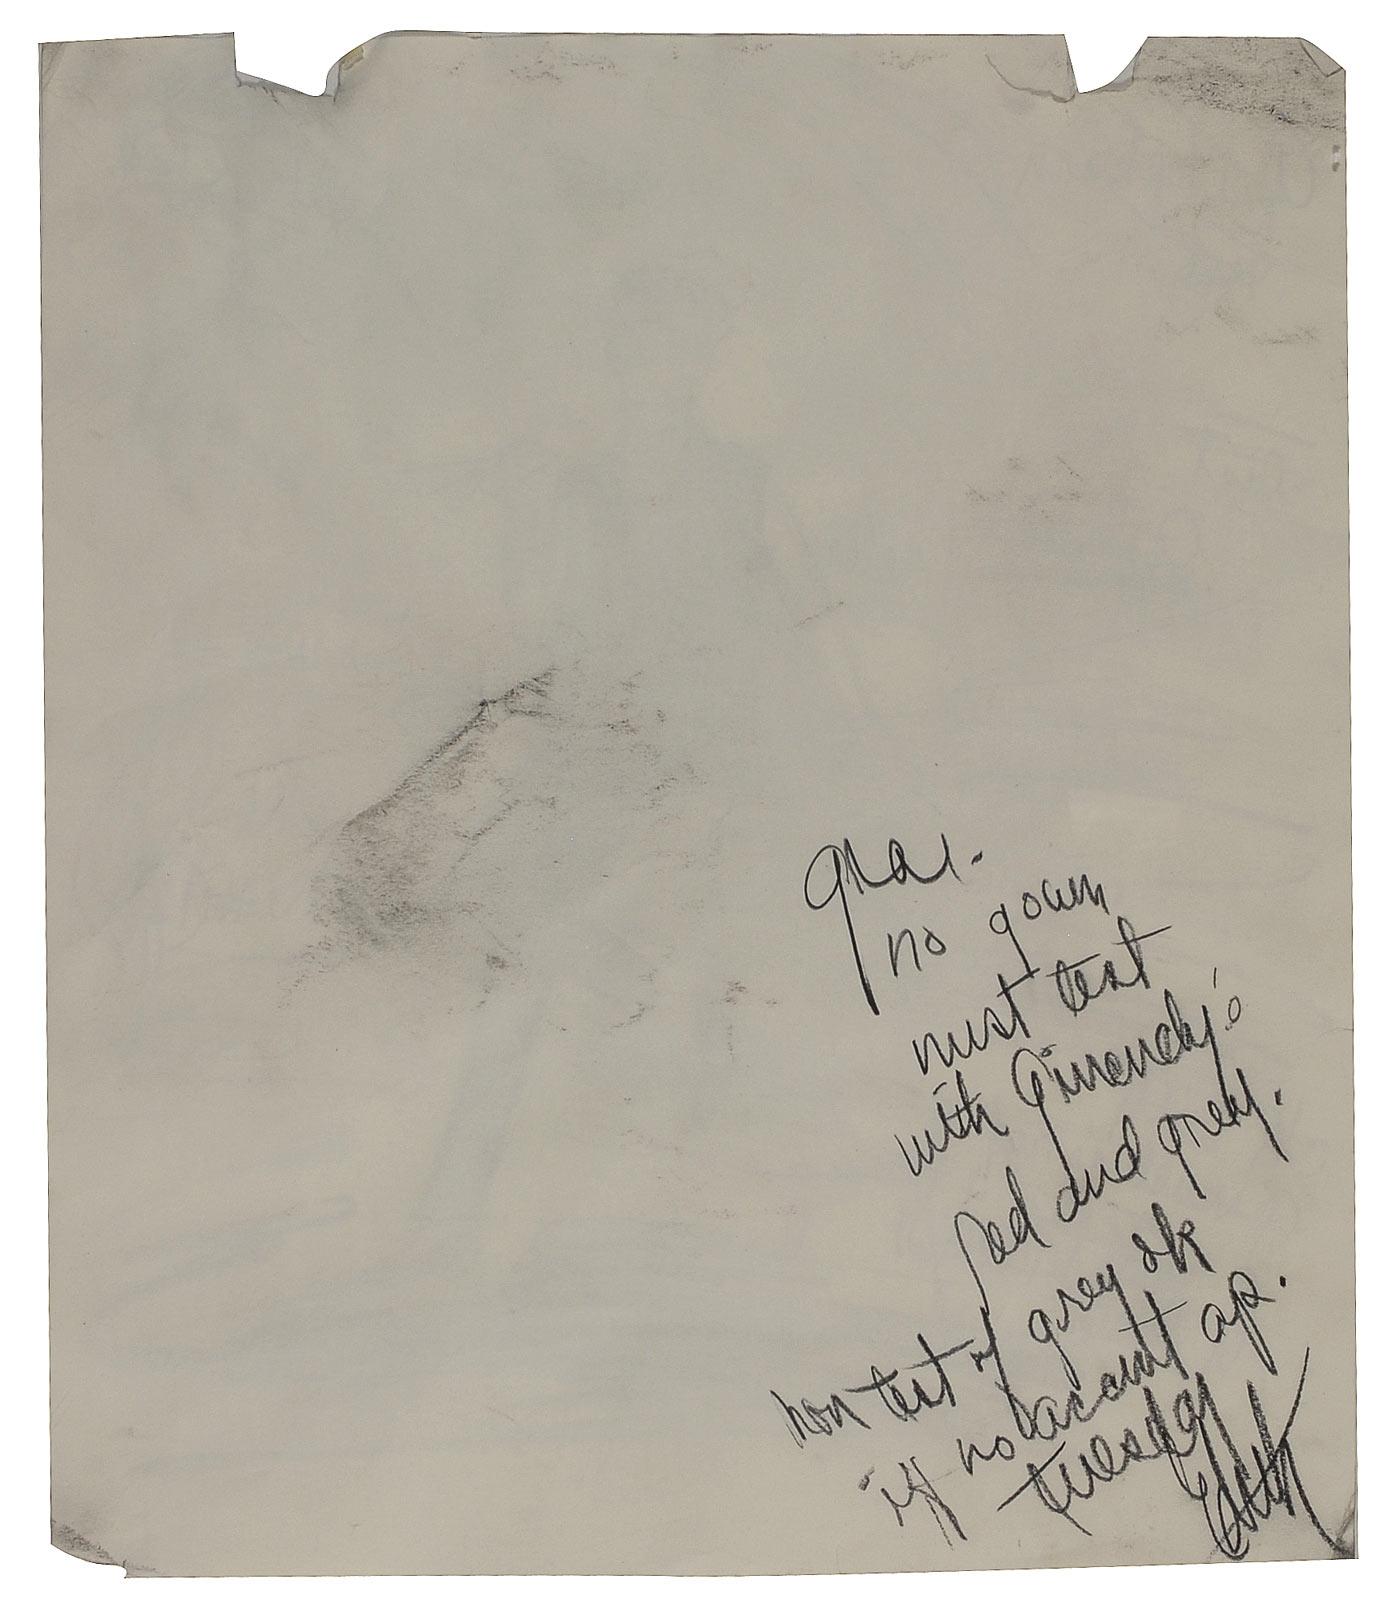 no gown
must test
with Givenchy's
red and grey.
test of grey ok
if no
tuesday
Edith